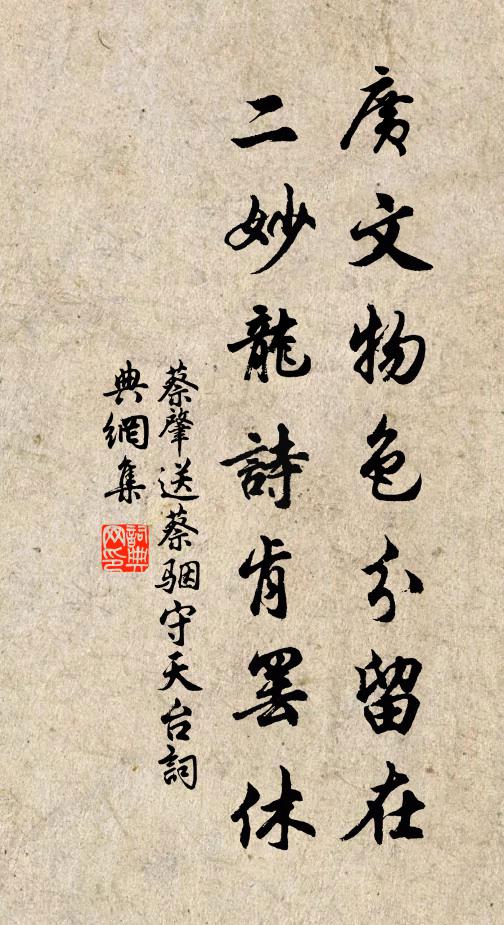 廣文物色分留在
二妙龍詩肯罷休
蔡肇送蔡駰守天台詞
典網集
詞典
网印